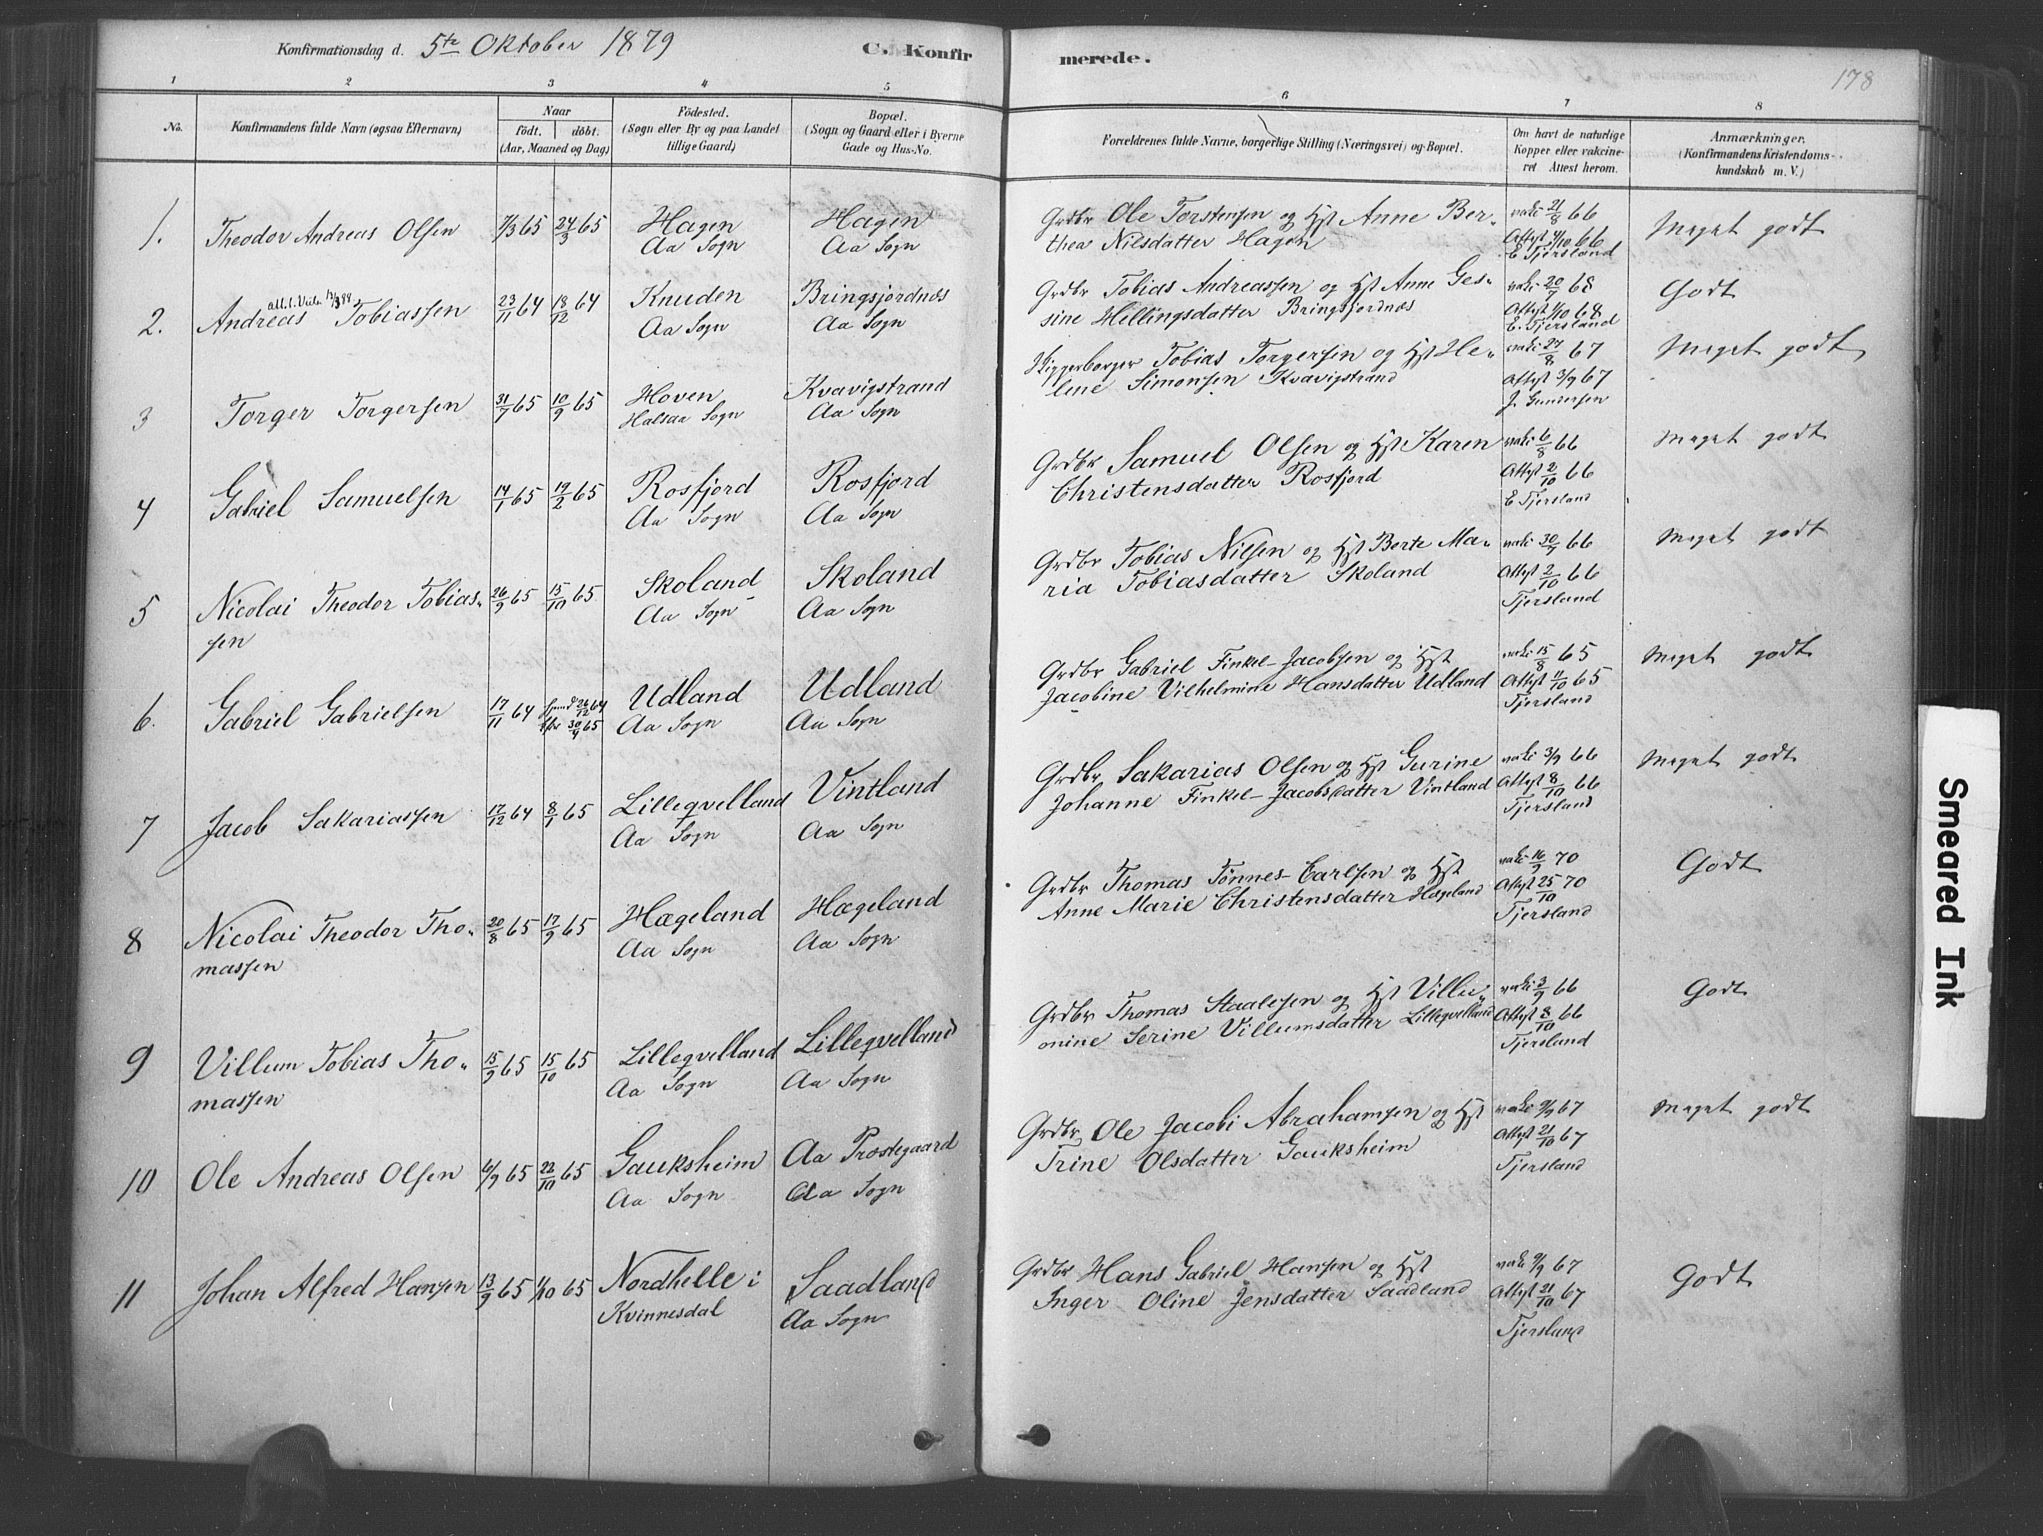 Konfirmationsdag d. 5te Oktober 1879
C. Konfirmerede.
178
1 2 3 4 5 6 7 8
No.
Konfirmandens fulde Navn (ogsaa Efternavn)
Naar
födt. döbt.
(Aar, Maaned og Dag)
Födested.
(Sogn eller By og paa Landet
tillige Gaard)
Bopæl.
(Sogn og Gaard eller i Byerne
Gade og Hus-No.
Forældrenes fulde Navne, borgerlige Stilling (Næringsvei) og Bopæl.
Om havt de naturlige
Kopper eller vakcine-
ret Attest herom.
Anmærkninger.
(Konfirmandens Kristendoms-
kundskab m. V.)
1. Theodor Andreas Olsen 7/3 65 24/3 65 Hagen Hagen Grdbr Ole Torstensen og Hst Anne Ber- vakc 21/8 66 Meget godt
Aa Sogn Aa Sogn thea Nilsdatter Hagen Attest 4/10 66
E Tjersland
2. Andreas Tobiassen 23/11 64 18/12 64 Knuden Bringsjordnes Grdbr Tobias Andreassen og Hst Anne Ges- vakc 20/9 68 Godt
Aa Sogn Aa Sogn sine Hellingsdatter Bringsfjordnes Attest 1/10 68
E. Tjersland
3 Torger Torgersen 31/7 65 10/9 65 Hoven Kvavigstrand Tobias Torgersen og Hst He- vakc 27/8 67 Meget godt
Halsaa Sogn Aa Sogn lene Simonsen Kvavigstrand Attest 3/9 67
J. Gundersen
4 Gabriel Samuelsen 14/1 65 19/2 65 Rosfjord Rosfjord Grdbr Samuel Olsen og Hst Karen vakc 6/8 66 Meget godt
Aa Sogn Aa Sogn Christensdatter Rosfjord Attest 2/10 66
E Tjersland
5 Nicolai Theodor Tobias- 26/9 65 15/10 65 Skoland Skoland Grdbr Tobias Nilsen og Hst Berte Ma- vakc 30/7 66 Meget godt
sen Aa Sogn Aa Sogn ria Tobiasdatter Skoland Attest 2/10 66
Tjersland
6. Gabriel Gabrielsen 17/11 64 26/12 64 30/4 65 Udland Udland Grdbr Gabriel Finkel-Jacobsen og Hst vakc 15/8 65 Meget godt
Aa Sogn Aa Sogn Jacobine Vilhelmine Hansdatter Udland Attest 11/10 65
Tjersland
7 Jacob Sakariassen 17/12 64 8/1 65 Lilleqvelland Vintland Grdbr Sakarias Olsen og Hst Gurine vakc 3/9 66 Meget godt
Aa Sogn Aa Sogn Johanne Finkel-Jacobsdatter Vintland Attest 8/10 66
Tjersland
8 Nicolai Theodor Tho- 20/8 65 17/9 65 Hægeland Hægeland Grdbr Thomas Tönnes-Carlsen og Hst vakc 16/9 70 Godt
massen Aa Sogn Aa Sogn Anne Marie Christensdatter Hægeland Attest 25/10 70
Tjersland
9 Villum Tobias Tho- 15/9 65 15/10 65 Lilleqvelland Lilleqvelland Grdbr Thomas Staalesen og Hst Villu- vakc 3/9 66 Godt
massen Aa Sogn Aa Sogn mine Serine Villumsdatter Lilleqvelland Attest 8/10 66
Tjersland
10 Ole Andreas Olsen 6/9 65 22/10 65 Gauksheim Aa Prostegaard Grdbr Ole Jacobi Abrahamsen og Hst vakc 9/9 67 Meget godt
Aa Sogn Aa Sogn Trine Olsdatter Gauksheim Attest 21/10 67
Tjersland
11 Johan Alfred Hansen 13/9 65 1/10 65 Nordhelle i Saadland Grdbr Hans Gabriel Hansen og Hst vakc 9/9 67 Godt
Kvinnesdal Aa Sogn Inger Oline Jensdatter Saadland Attest 21/10 67
Tjersland
Smeared Ink